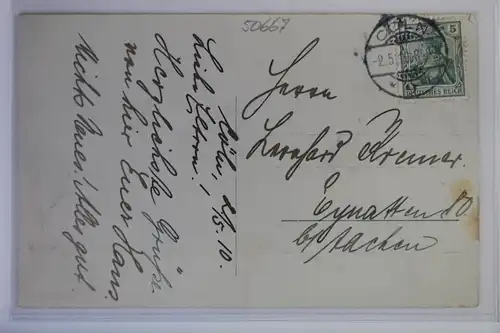 50667
Cöln, 2/5 10.
Liebe Eltern!
Herzlichste Grüße
von hier Euer Hans.
Nichts Neues! Alles gut.
CÖLN
-2.5.
5
DEUTSCHES REICH
Herrn
Bernhard Kremer.
Eynatten
b/ Aachen